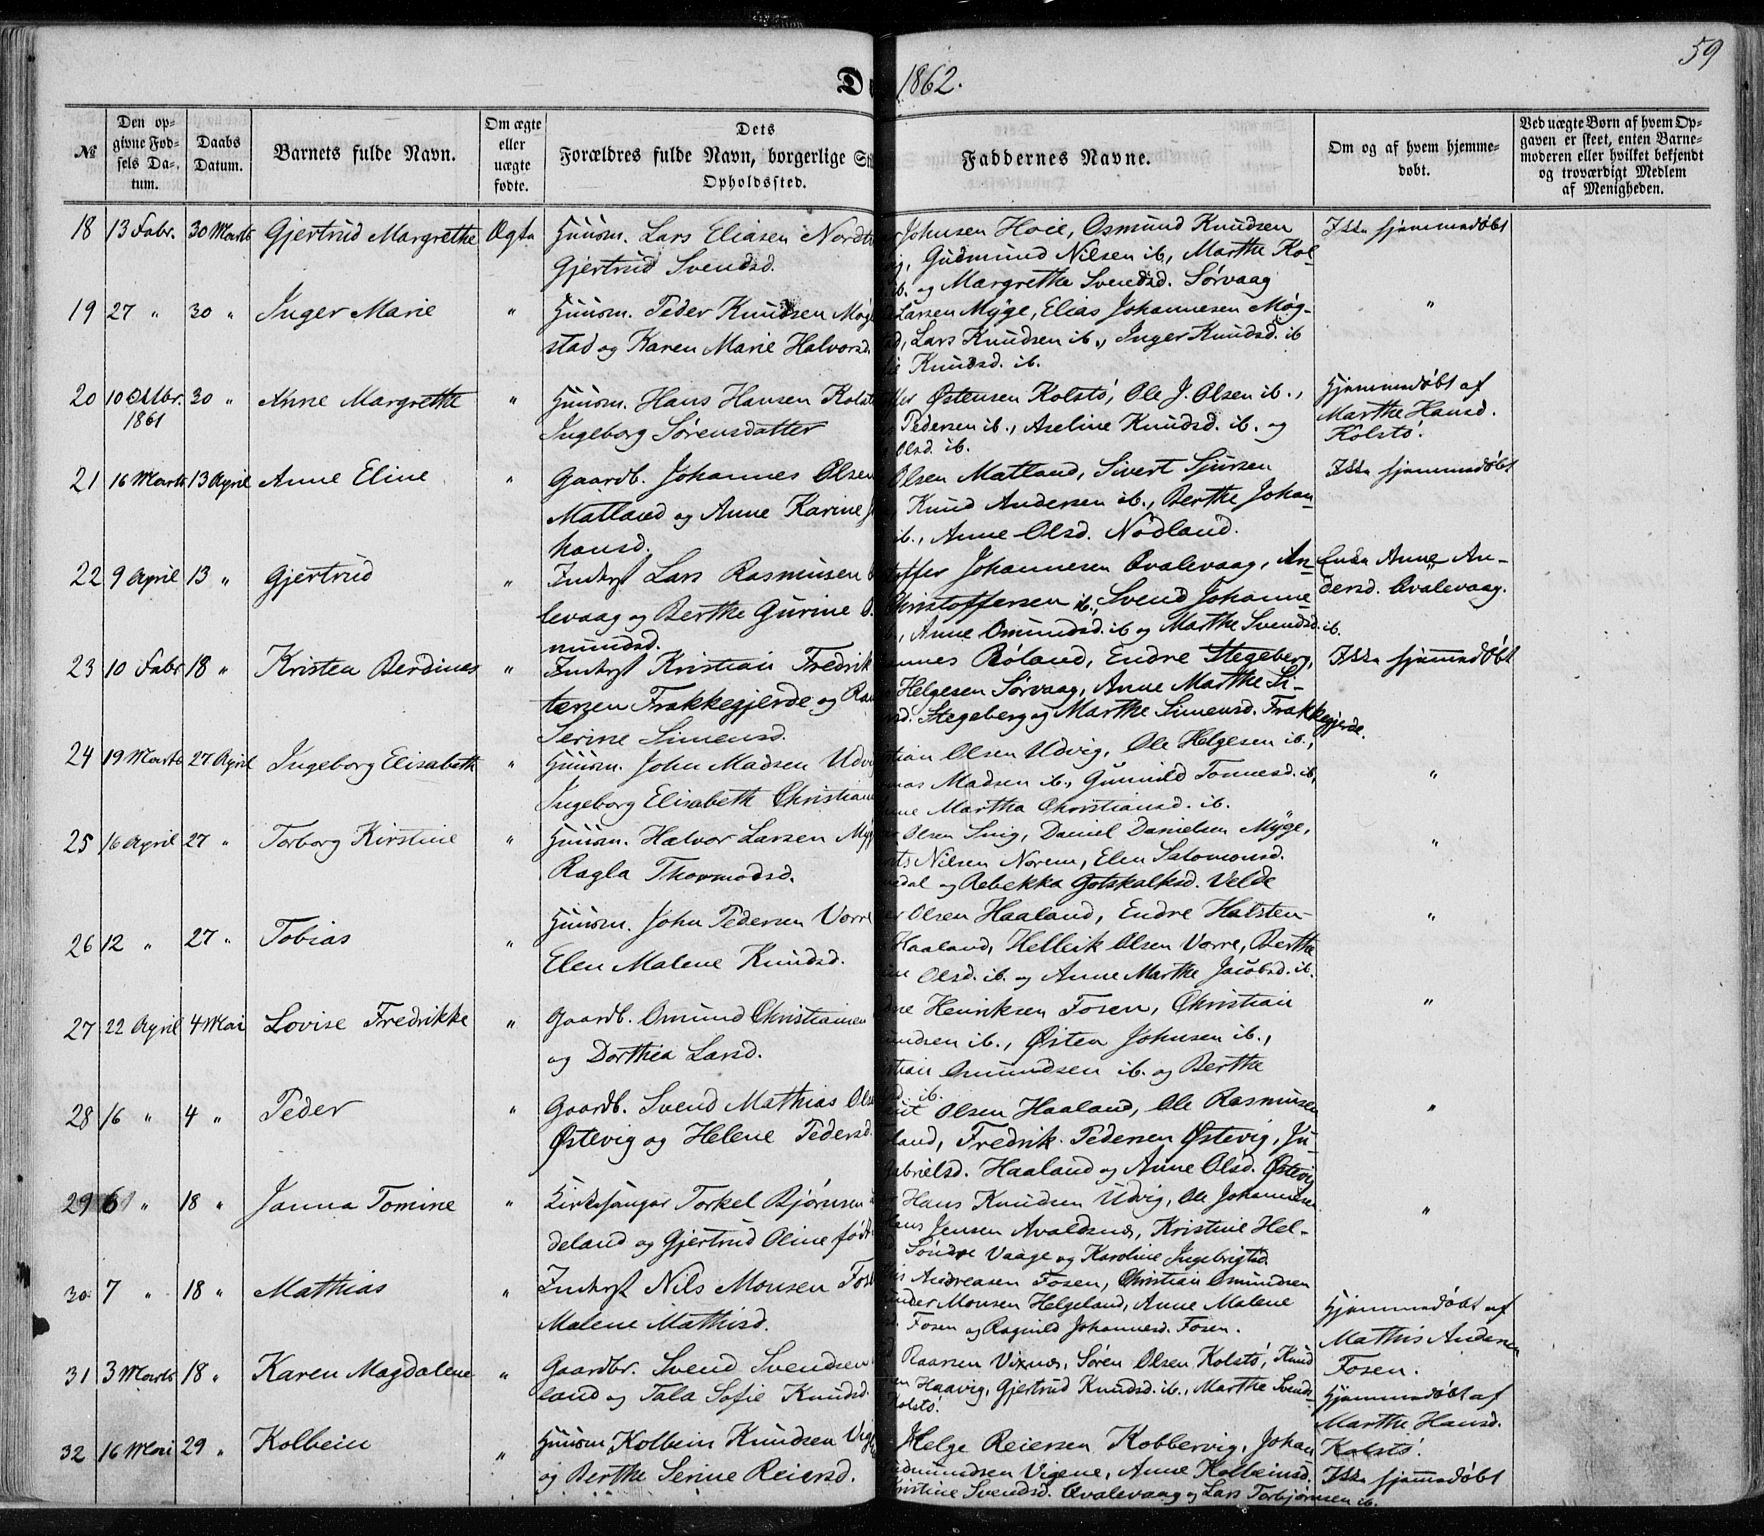 59
1862.
№
Den op-
givne Fød-
sels Da-
tum.
Daabs
Datum.
Barnets fulde Navn.
Om ægte
eller
uægte
fødte.
Dets
Forældres fulde Navn, borgerlige
Opholdssted.
Faddernes Navne.
Om og af hvem hjemme-
døbt.
Ved uægte Børn af hvem Op-
gaven er skeet, enten Barne-
moderen eller hvilket bekjendt
og troværdigt Medlem
af Menigheden.
18 13 Febr. 30 Marts Gjertrud Margrethe Ægte Huusm. Lars Eliasen
Gjertrud Svendsd.
Johnsen Hoie, Osmund Knudsen
Gudmund Nilsen ib., Marthe Kol-
ib. og Margrethe Svendsd. Sørvaag
Ikke hjemmedøbt
19 27 " 30 " Inger Marie " Huusm. Peder Knudsen Møg-
stad og Karen Marie Halvorsd.
Larsen Myge, Elias Johannesen Møg-
Lars Knudsen ib., Inger Knudsd. ib
Knudsd. ib.
"
20 10 Oktbr. 1861 30 " Anne Margrethe " Huusm. Hans Hansen
Ingeborg Sørensdatter
Østensen Kolstø, Ole J. Olsen ib.,
Pedersen ib., Aseline Knudsd. ib. og
Olsd. ib.
Hjemmedøbt af
Marthe Hansd.
Kolstø.
21 16 Marts 13 April Anne Eline " Gaardb. Johannes Olsen
Matland og Anne Karine
hansd.
Olsen Matland, Sivert Sjursen
Knud Andersen ib., Berthe Johan
ib., Anne Olsd. Nodland.
Ikke hjemmedøbt
22 9 April 13 " Gjertrud " Inderst Lars Rasmusen
levaag og Berthe Gurine
mundsd.
toffer Johannesen Qvalevaag, An-
Christoffersen ib., Svend Johanne
Anne Omundsd. ib og Marthe Svendsd. ib.
Enke Anne An-
dersd. Qvalevaag.
23 10 Febr 18 " Kristen Berdines " Inderst Kristian Fredrik
tersen Frakkegjerde og
Serine Simensd.
annes Røland, Endre Stegeberg,
Helgesen Sørvaag, Anne Marthe Si-
Stegeberg og Marthe Simensd. Frakkegjerde.
Ikke hjemmedøbt
24 19 Marts 27 April Ingeborg Elisabeth " Huusm. John Madsen Udvig
Ingeborg Elisabeth
stian Olsen Udvig, Ole Helgesen ib.,
Madsen ib., Gunnild Tonnesd. ib,
Martha Christiansd. ib.
"
25 16 April 27 " Torborg Kirstine " Huusm. Halvor Larsen
Ragla Thormodsd.
Olsen Snig, Daniel Danielsen Myge,
Nilsen Norem, Elen Salomonsd.
og Rebekka Gotskalksd. Velde
"
26 12 " 27 " Tobias " Huusm. John Pedersen Vorre
Elen Malene Knudsd.
Olsen Haaland, Endre Halsten-
Haaland, Hellik Olsen Vorre, Berthe
Olsd. ib. og Anne Marthe Jacobsd. ib.
"
27 22 April 4 Mai Lovise Fredrikke " Gaardb. Omund Christiansen
og Dorthea Larsd.
Henriksen Fosen, Christian
ib., Østen Johnsen ib.,
Omundsen ib. og Berthe
ib.
"
28 16 " 4 " Peder " Gaardb. Svend Mathias
Østevig og Helene Pedersd.
Olsen Haaland, Ole Rasmusen
Fredrik Pedersen Østevig,
Gabrielsd. Haaland og Anne Olsd. Østevig
"
29 6 " 18 " Janna Tomine " Kirkesanger Torkel Bjørnsen
deland og Gjertrud Oline født
Hans Knudsen Udvig, Ole Johannesen
Jensen Avaldsnæs, Kristine Hel-
Søndre Vaage og Karoline Ingebrigtsd.
"
30 7 " 18 " Mathias " Inderst Nils Monsen
Malene Mathisd.
Andreasen Fosen, Christian Omundsen
Monsen Helgeland, Anne Malene
Fosen og Ragnild Johannesd. Fosen.
Hjemmedøbt af
Mathis
Fosen.
31 3 Marts 18 " Karen Magdalene " Gaardbr. Svend Svendsen
land og Tala Sofie Knudsd.
Vixnæs, Søren Olsen Kolstø, Knud
Haavig, Gjertrud Knudsd. ib., Marthe
Kolstø.
Hjemmedøbt af
Marthe Hansd.
Kolstø.
32 16 Mai 29 " Kolbein " Huusm. Kolbein Knudsen
og Berthe Serine Reiersd.
Helge Reiersen Kobbervig, Johan
Vigene, Anne Kolbeinsd.
Svendsd. Qvalevaag og Lars Torbjørnsen ib.
Ikke hjemmedøbt